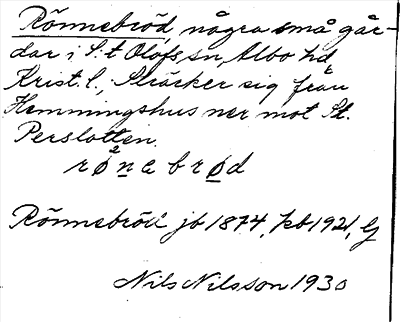 Rönnebröd, några små går-
dar i S:t Olofs sn, Albo hd
Krist. l., Sträcker sig från
Hemmingshus ner mot St.
Perslotten.
rø²nabrød
Rönnebröd jb 1874, kb 1921, Gj
Nils Nilsson 1930